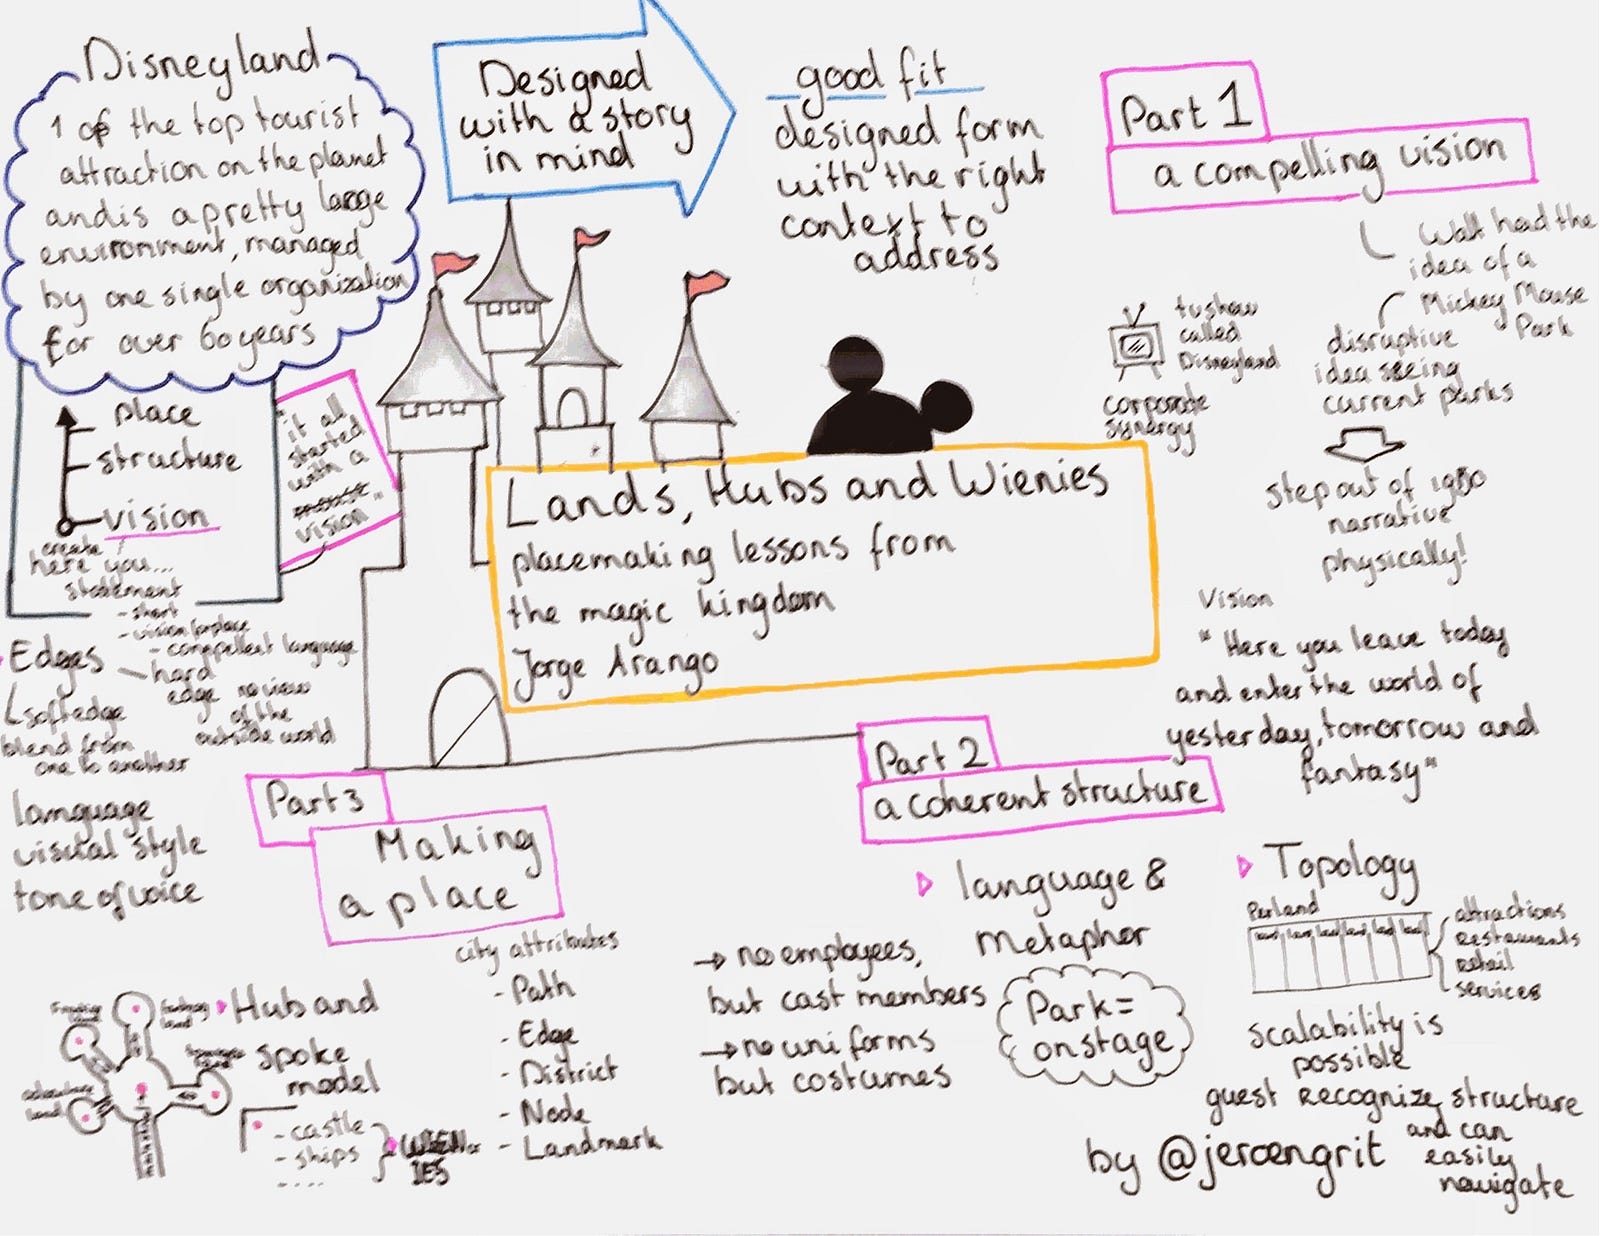 Disneyland
1 of the top tourist
attraction on the planet
and is a pretty large
environment, managed
by one single organization
for over 60 years
Designed
with a story
in mind
good fit
designed form
with the right
context to
address
Part 1
a compelling vision
Walt had the
idea of a
Mickey Mouse
Park
disruptive
idea seeing
current parks
tvshow
called
Disneyland
corporate
synergy
step out of 1950
narrative
physically!
Vision
"Here you leave today
and enter the world of
yesterday, tomorrow and
fantasy"
place
structure
vision
create
here you...
statement
- short
- vision for place
- compellent language
"it all
started
with a
mouse"
vision
Lands, Hubs and Wienies
placemaking lessons from
the magic kingdom
Jorge Arango
Part 2
a coherent structure
language &
Metaphor
→ no employees,
but cast members
→ no uniforms
but costumes
Park =
onstage
Topology
Per land
land land land land land land
attractions
Restaurants
Retail
services
scalability is
possible
guest recognize structure
and can
easily
navigate
Part 3
Making
a place
Edges
hard
edge no view
of the
outside world
soft edge
blend from
one to another
language
visual style
tone of voice
city attributes
- Path
- Edge
- District
- Node
- Landmark
Hub and
spoke
model
land
land
- castle
- ships
- ....
WIEN
IES
by @jeroengrit